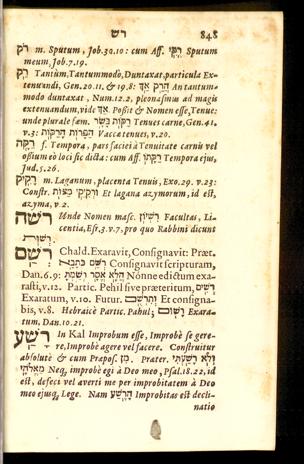 רש 848
רֹק m. Sputum, Job.30.10: cum Aff. רֻקִּי Sputum
meum, Job.7.19.
רַק Tantùm, Tantummodò, Duntaxat, particula Ex-
tenuandi, Gen.20.11. & 19.8: הֲרַק אַךְ An tantum-
modo duntaxat, Num.12.2, pleonasmus ad magis
extenuandum, vide אַךְ Possit & Nomen esse, Tenue:
unde plurale fæm. רַקּוֹת בָּשָׂר Tenues carne, Gen.41.
v.3: הַפָּרוֹת הָרַקּוֹת Vaccæ tenues, v.20.
רַקָּה f. Tempora, pars faciei à Tenuitate carnis vel
ossium eo loci sic dicta: cum Aff. רַקָּתוֹ Tempora ejus,
Jud.5.26.
רָקִיק m. Laganum, placenta Tenuis, Exo.29. v.23:
Constr. וּרְקִיקֵי מַצּוֹת Et lagana azymorum, id est,
azyma, v.2.
רשה Unde Nomen masc. רִשְׁיוֹן Facultas, Li-
centia, Esr.3.v.7, pro quo Rabbini dicunt
רְשׁוּת
רשם Chald. Exaravit, Consignavit: Præt.
רְשַׁם כְּתָבָא Consignavit scripturam,
Dan.6.9: הֲלָא אֱסָר רְשַׁמְתָּ Nonne edictum exa-
rasti, v.12. Partic. Pehil sive præteritum, רְשִׁים
Exaratum, v.10. Futur. וְתִרְשֻׁם Et consigna-
bis, v.8. Hebraicè Partic. Pahul; רָשׁוּם Exara-
tum, Dan.10.21.
רשע In Kal Improbum esse, Improbè se gere-
re, Improbè agere vel facere. Construitur
absolutè & cum Præpos. מִן. Præter. וְלֹא רָשַׁעְתִּי
מֵאֱלֹהָי Neq, improbè egi à Deo meo, Psal.18.22, id
est, defeci vel averti me per improbitatem à Deo
meo ejusq, Lege. Nam הָרֶשַׁע Improbitas est decli-
natio